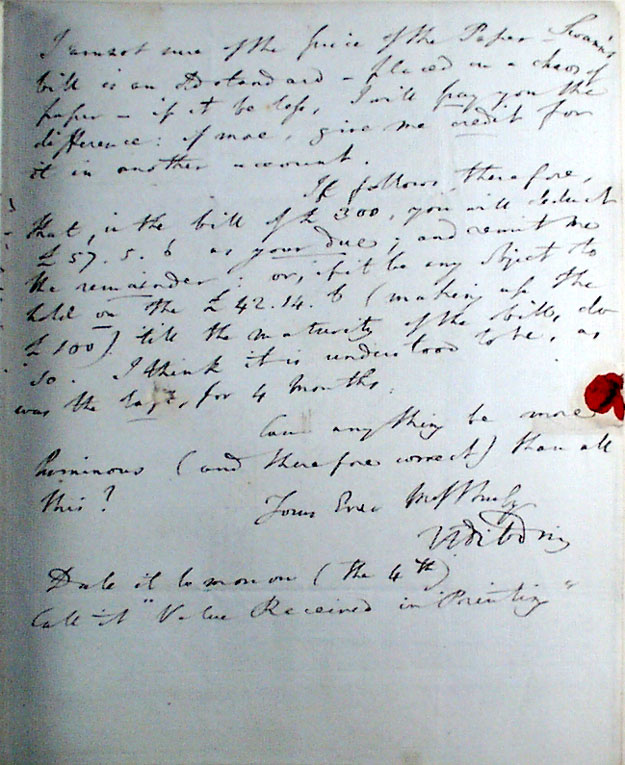 I am not sure of the price of the Paper – Swann's
bill is an Dstandard – placed in a chaos of
paper – if it be less, I will pay you the
difference: if more, give me credit for
it in another account.
It follows, therefore,
that, in the bill of £300, you will deduct
£57.5.6 as your due; and remit me
the remainder: or, if it be any object to
hold on the £42.14.6 (making up the
£100) till the maturity of the bills, do
so. I think it is understood to be, as
was the last, for 4 months.
Can anything be more
luminous (and therefore correct) than all
this?
Yours Ever Most Truly
TFDibdin
Date it tomorrow (the 4th)
Call it "Value Received in Printing"